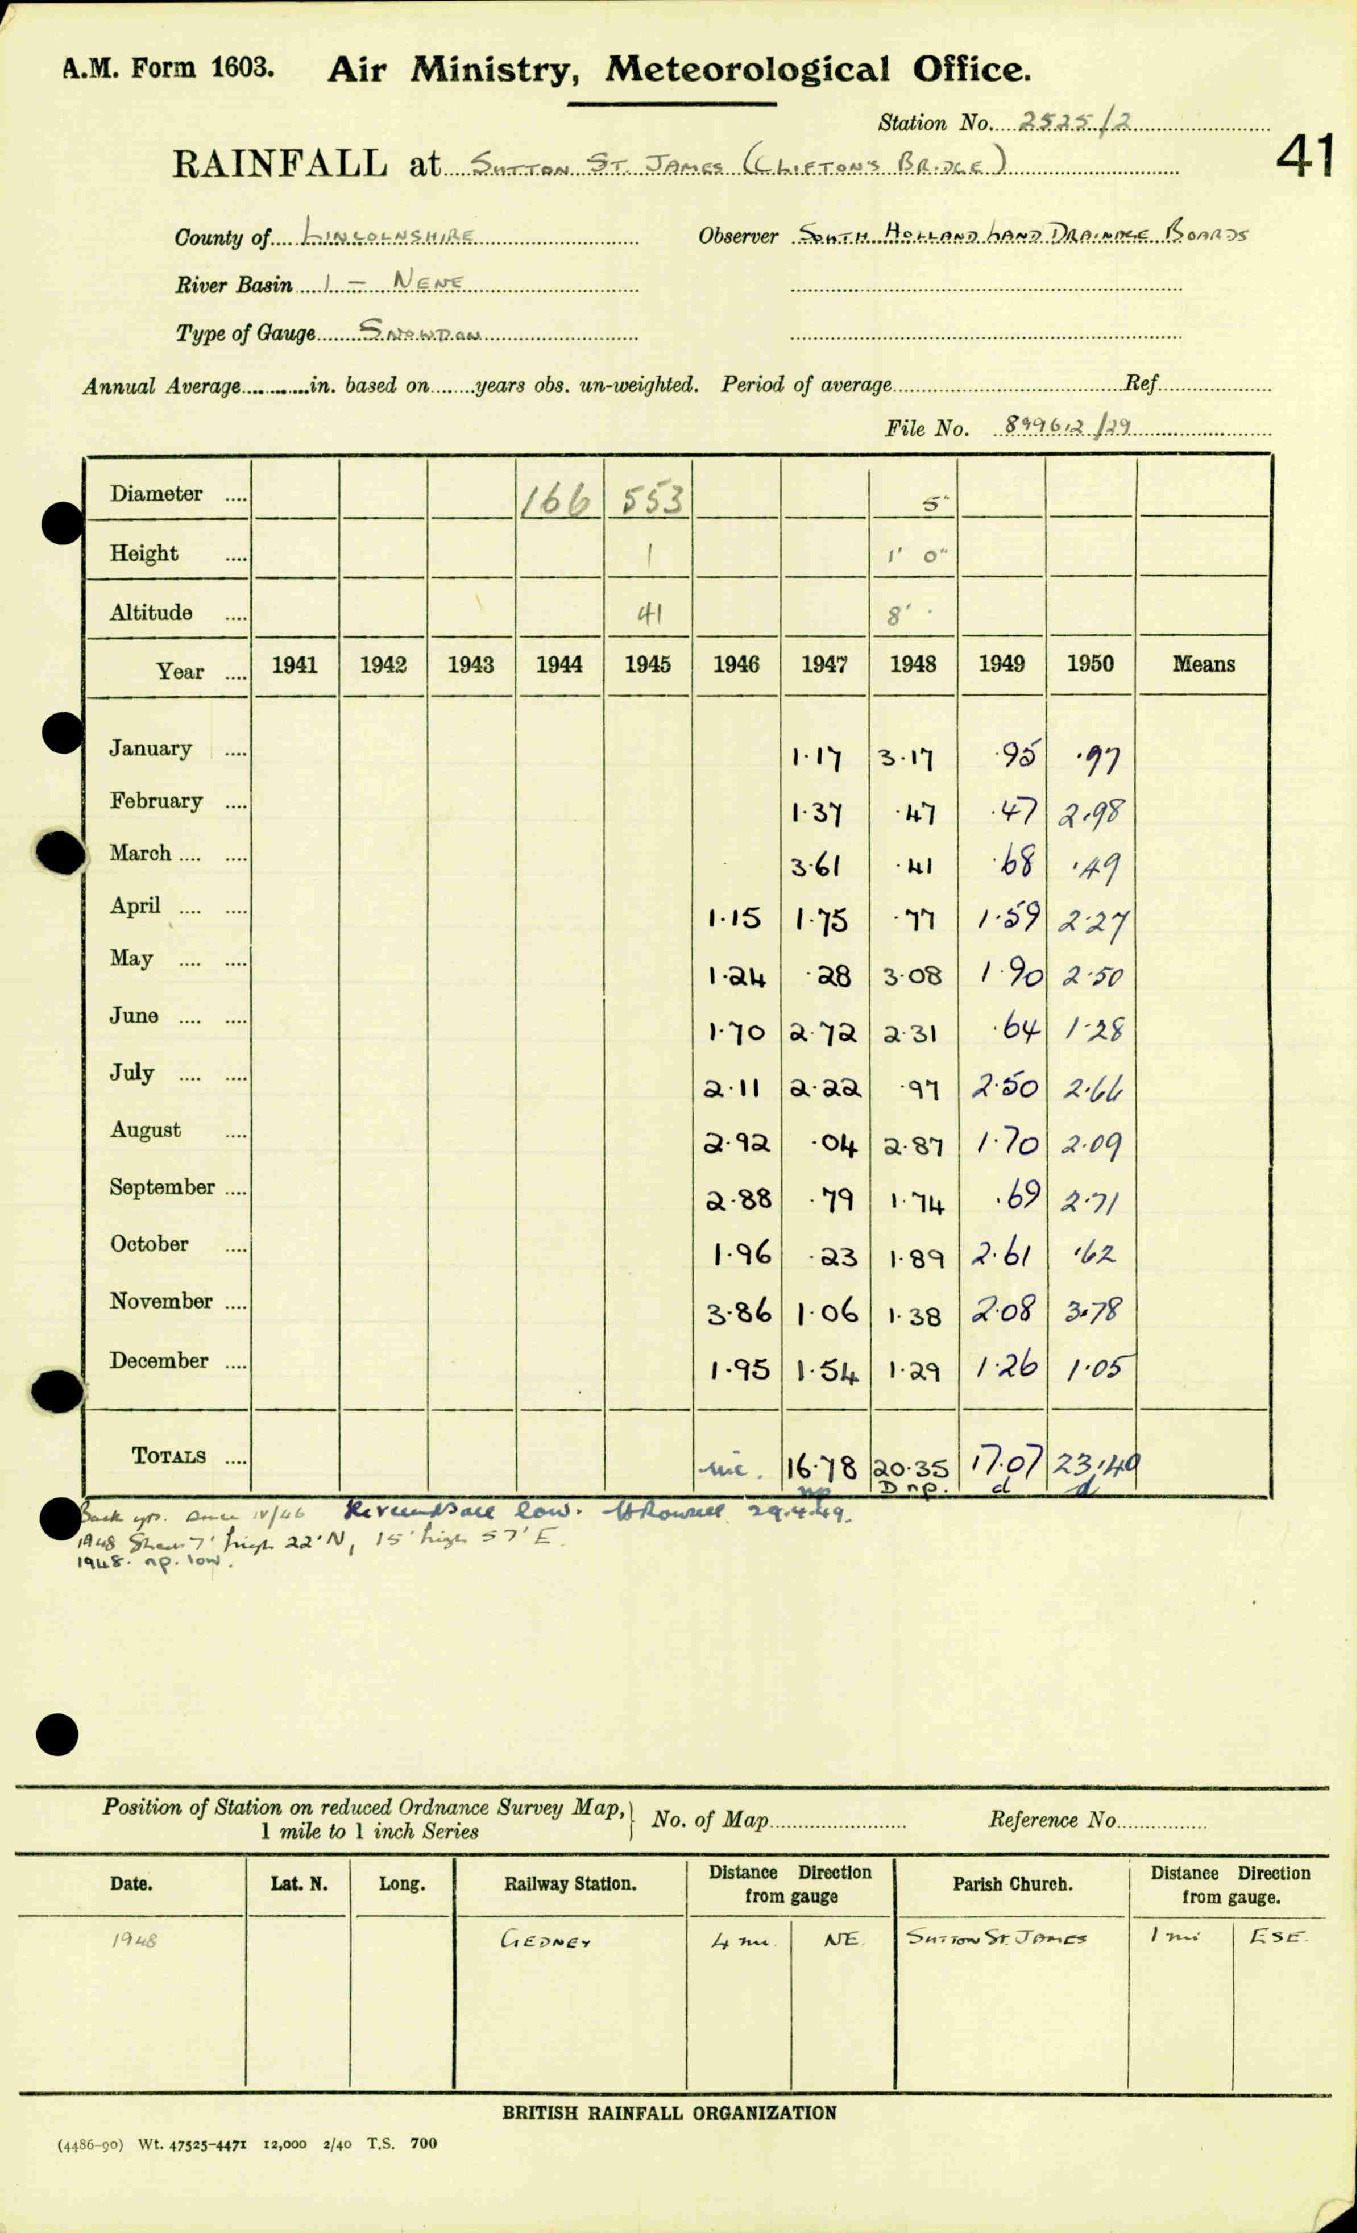 A.M. Form 1603. Air Ministry, Meteorological Office.
Station No. 2525/2
41
RAINFALL at SUTTON ST. JAMES (CLIFTON'S BRIDGE)
County of LINCOLNSHIRE Observer SOUTH HOLLAND LAND DRAINAGE BOARDS
River Basin 1 - NENE
Type of Gauge SNOWDON
Annual Average in. based on years obs. un-weighted. Period of average Ref
File No. 899612/29
Diameter 166 553 5"
Height 1 1' 0"
Altitude 41 8'
Year 1941 1942 1943 1944 1945 1946 1947 1948 1949 1950 Means
January 1.17 3.17 .95 .97
February 1.37 .47 .47 2.98
March 3.61 .41 .68 .49
April 1.15 1.75 .77 1.59 2.27
May 1.24 .28 3.08 1.90 2.50
June 1.70 2.72 2.31 .64 1.28
July 2.11 2.22 .97 2.50 2.66
August 2.92 .04 2.87 1.70 2.09
September 2.88 .79 1.74 .69 2.71
October 1.96 .23 1.89 2.61 .62
November 3.86 1.06 1.38 2.08 3.78
December 1.95 1.54 1.29 1.26 1.05
TOTALS 16.78 20.35 17.07 23.40
np D np. d d
Back yrs. since IV/46 low. 29.4.49.
1948 7' high 22' N, 15' high 57' E.
1948. np. low.
Position of Station on reduced Ordnance Survey Map,} No. of Map Reference No.
1 mile to 1 inch Series
Date. Lat. N. Long. Railway Station. Distance Direction from gauge Parish Church. Distance Direction from gauge.
1948 GEDNEY 4 mi. NE. SUTTON ST. JAMES 1 mi ESE.
BRITISH RAINFALL ORGANIZATION
(4486-90) Wt. 47525-4471 12,000 2/40 T.S. 700